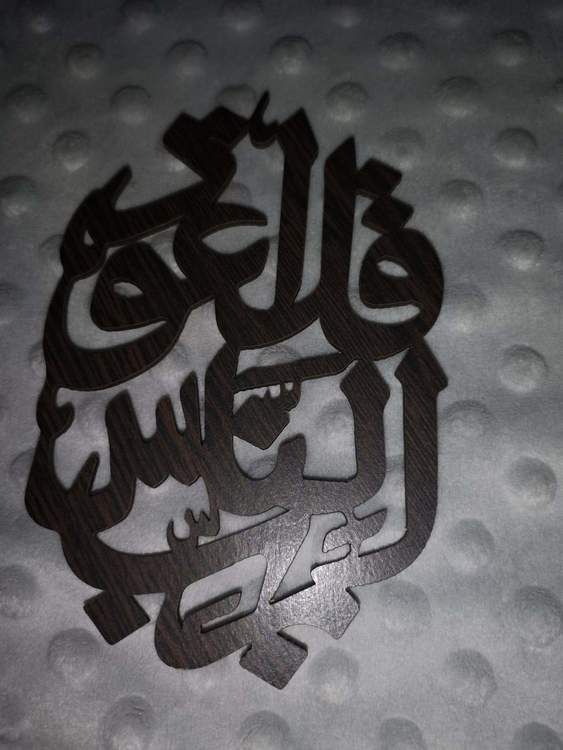 قل أعوذ
برب
الناس